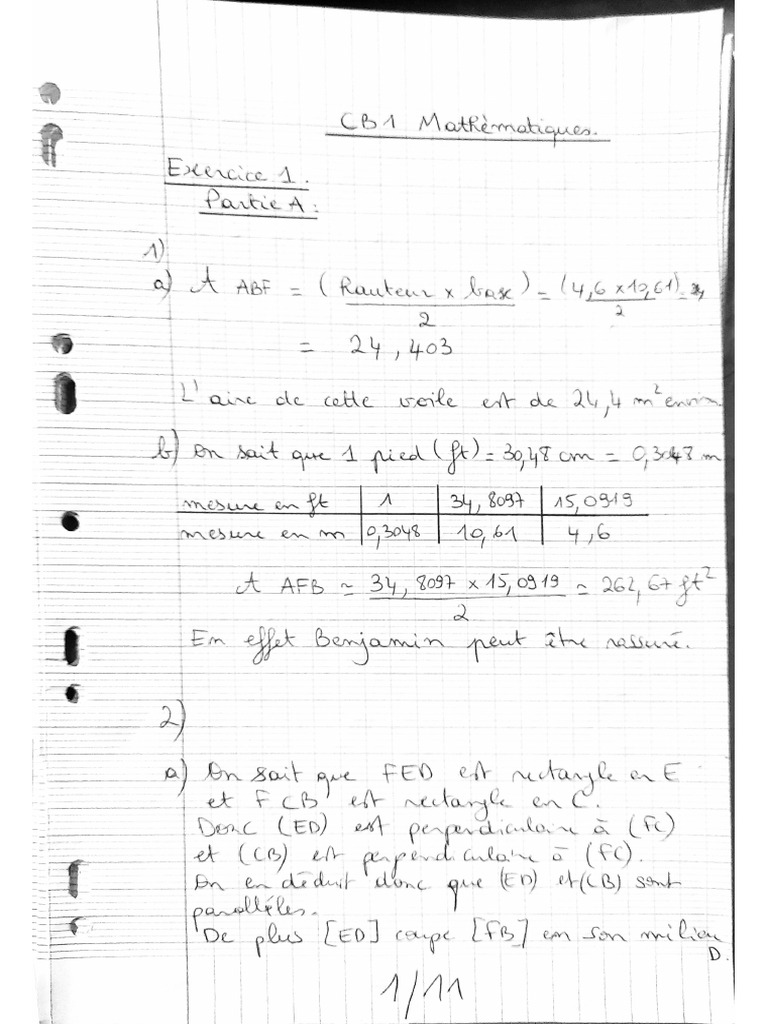 CB1 Mathématiques.
Exercice 1.
Partie A:
1)
a) A ABF = (hauteur x base)/2 = (4,6 x 10,61)/2 =
= 24,403
L'aire de cette voile est de 24,4 m² environ
b) On sait que 1 pied (ft) = 30,48 cm = 0,3048 m
mesure en ft | 1 | 34,8097 | 15,0919
mesure en m | 0,3048 | 10,61 | 4,6
A AFB ≃ 34,8097 x 15,0919/2 ≃ 262,67 ft²
En effet Benjamin peut être rassuré.
2)
a) On sait que FED est rectangle en E
et FCB est rectangle en C.
Donc (ED) est perpendiculaire à (FC)
et (CB) est perpendiculaire à (FC).
On en déduit donc que (ED) et (CB) sont
parallèles.
De plus [ED] coupe [FB] en son milieu
D.
1/11